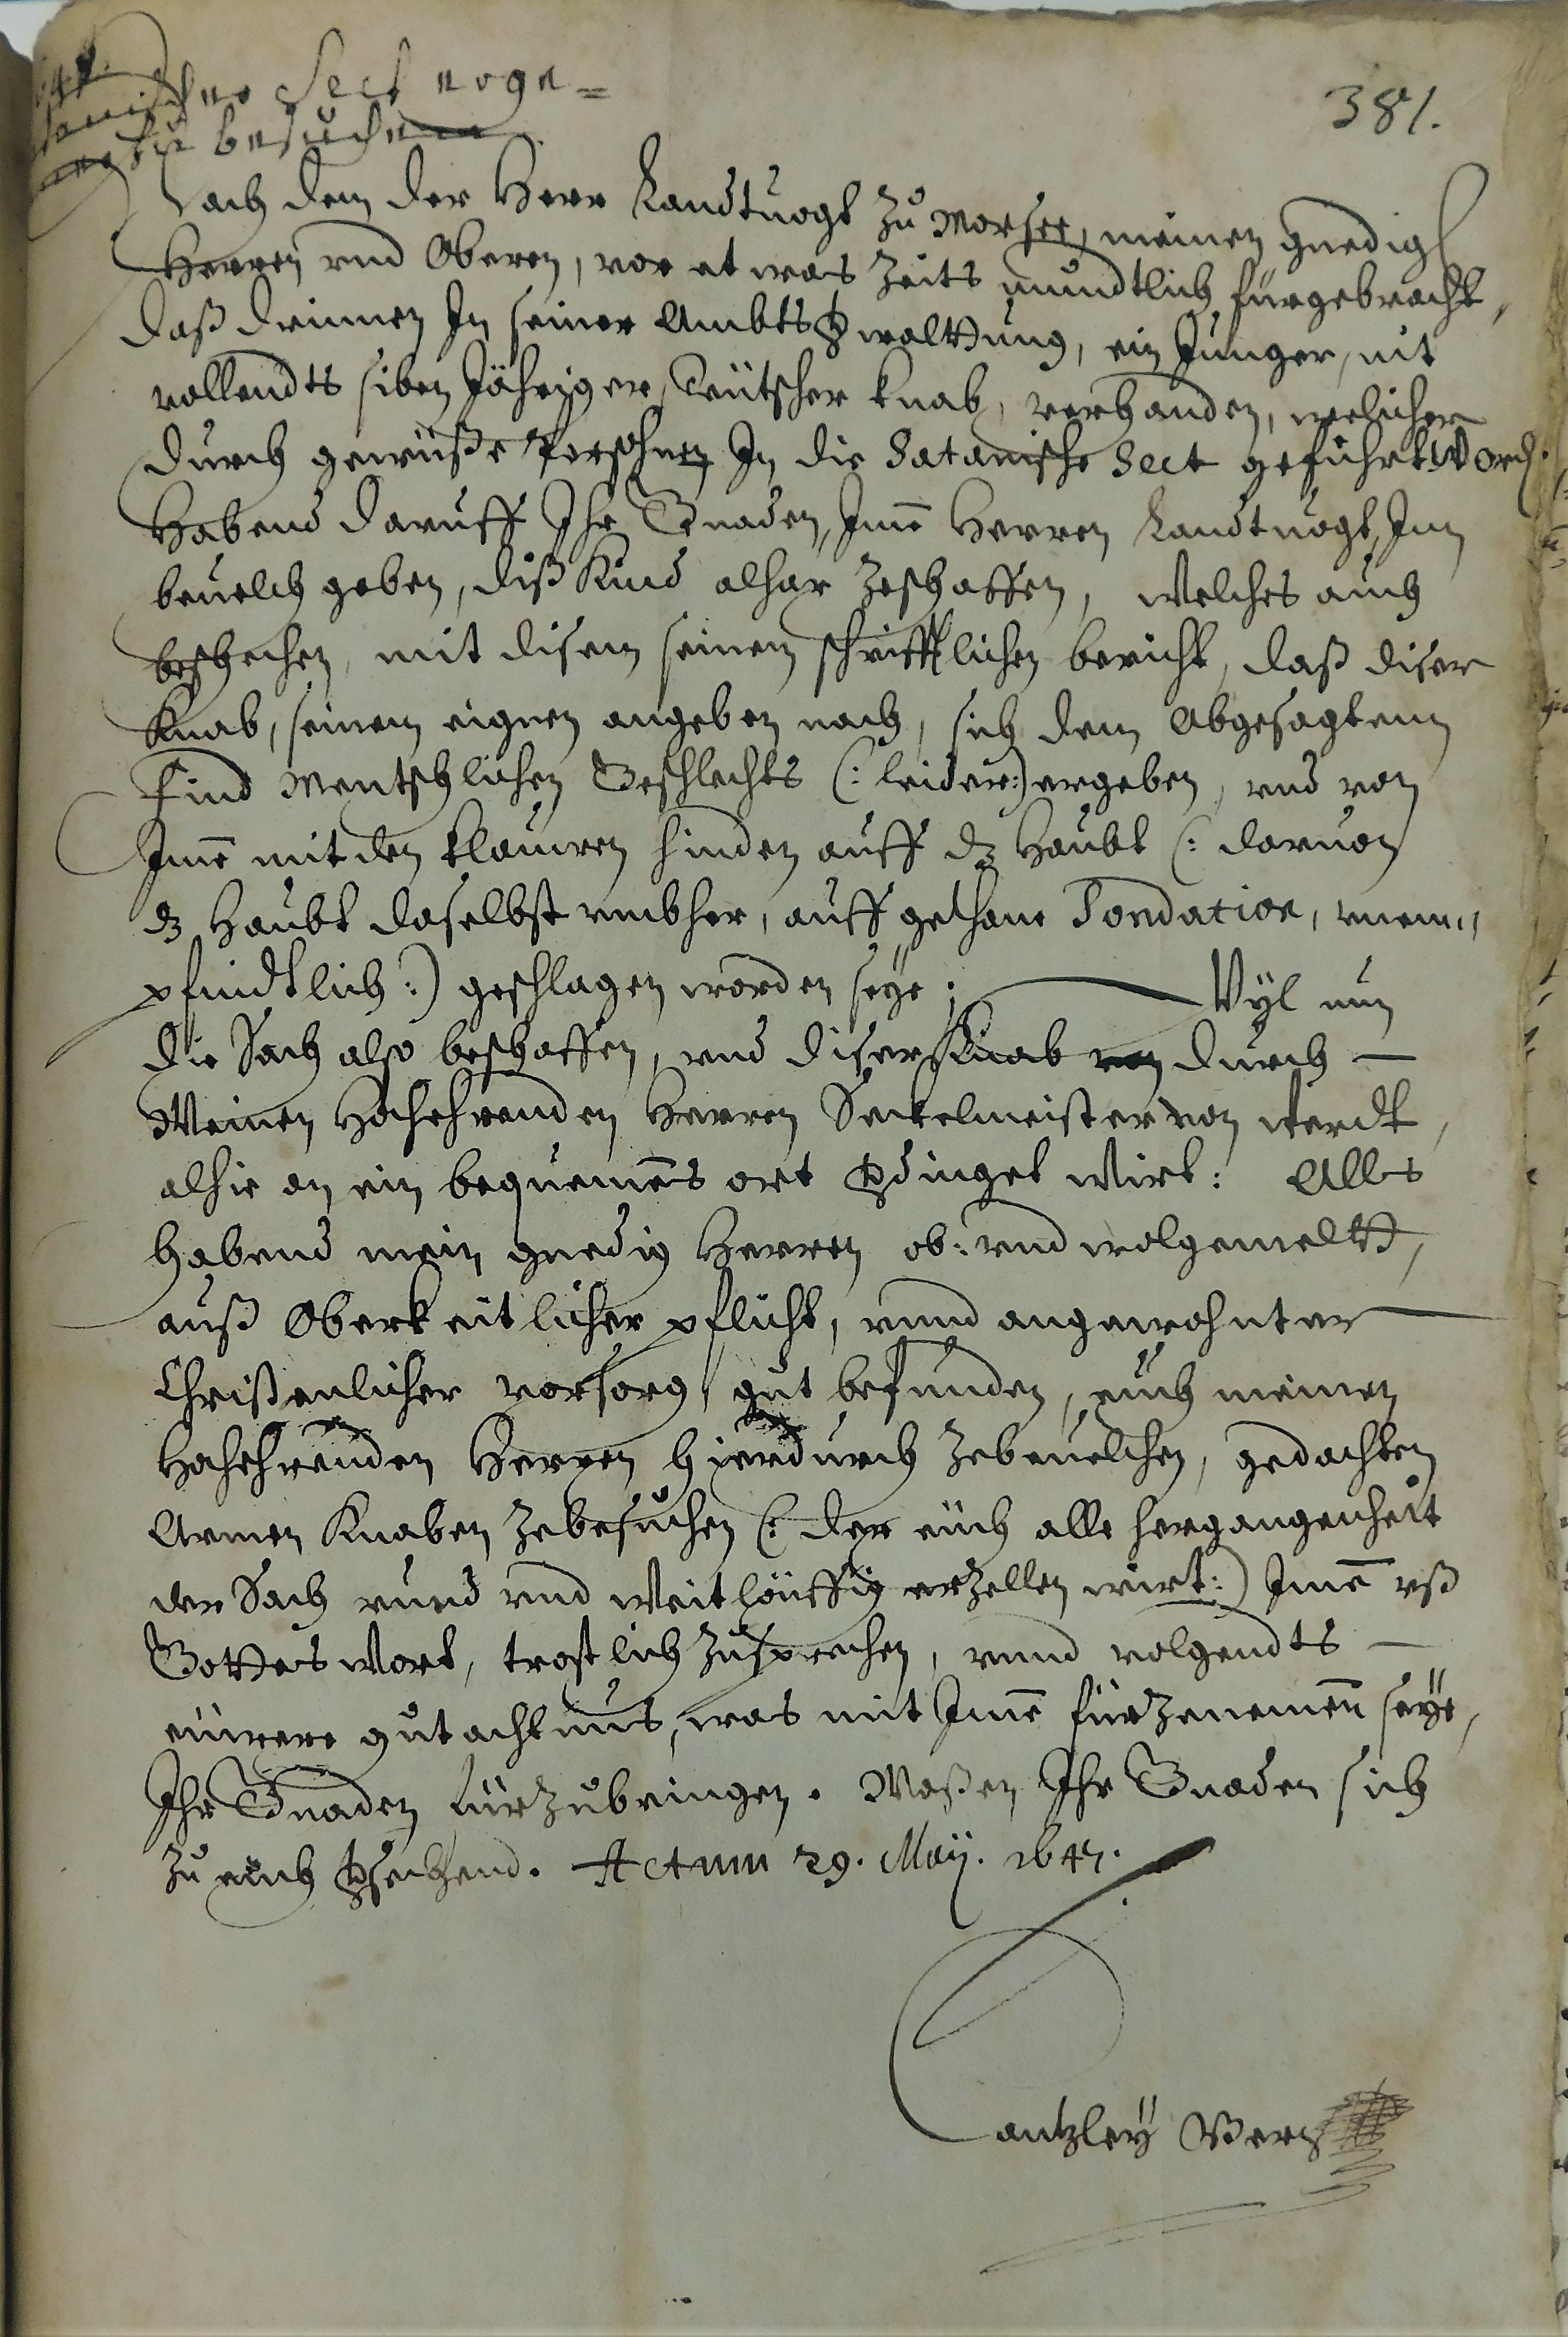 Sect erge=
zu besuchen
381.
Nach dem der Herr Landtuogt zu Morsee, meinen gnedig
Herren vnd Oberen, vor etwas Zeits mundtlich fürgebracht,
daß drinnen In seiner Ambtsverwalttung, ein Junger, nit
vollendts siben Jähriger, Teütscher knab, verhanden, welicher
durch gewüße Persohnen In die Satanische Sect geführt word.
Habend daruff Ihr Gnaden, Ime Herren Landtuogt, Inn
beuelch geben, diß Kind alhar zeschaffen, Welches auch
beschechen, mit disem seinem schrifftlichen bericht, daß diser
Knab, seinem eignen angeben nach, sich dem Abgesagtenn
Find Mentschlichen Geschlechts (: leider:) ergeben, vnd von
Ime mit den klauwen hinden auff dz Haubt (: daruon
dz Haubt daselbst vmbher, auff gethane Sondation, vnem,,
pfindtlich:) geschlagen worden seye; Wyl nun
die Sach also beschaffen, vnd diser Knab von durch
Meinen Hochehrenden Herren Seckelmeister von Werdt,
alhie an ein bequemes ort verdinget wirt: Alls
habend mein gnedig Herren ob: vnd wolgemeltt,
auß Oberkeitlicher pflicht, vnnd angewohnter
Christenlicher vorsorg, gut befunden, eüch meinen
Hochehrenden Herren hierdurch zebeuelchen, gedachten
Armen Knaben zebesuchen (: der eüch alle hergangenheit
der Sach rund vnd Weitlöuffig erzellen wirt:) Ime vß
Gottes Wort, trostlich zusprechen, vnnd volgendts
eüwere gutachtnus, was mit Ime fürzenemen seye,
Ihr Gnaden fürzubringen. Maßen Ihr Gnaden sich
zu eüch versechend. Actum 29. Maij. 1647.
Cantzley Bern